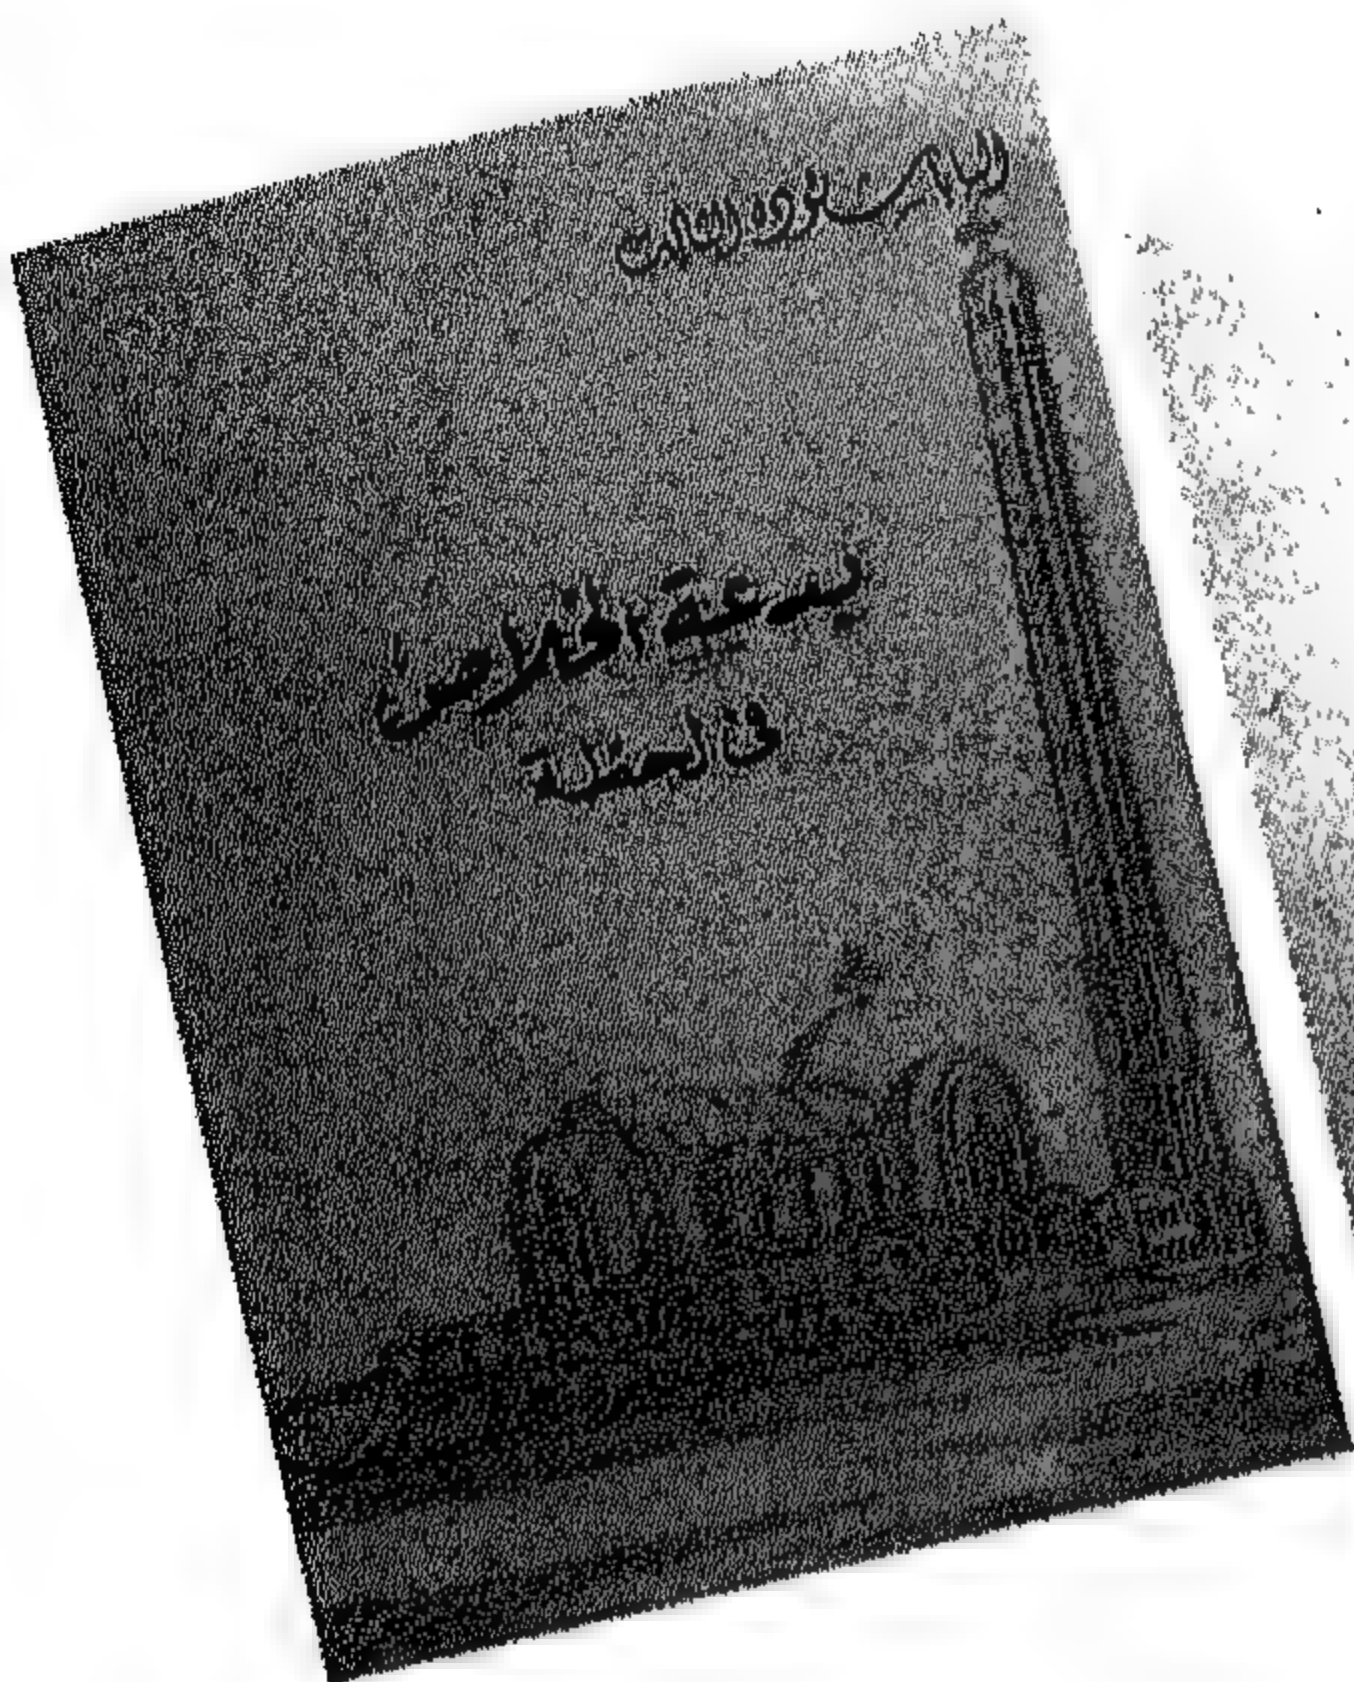 البابا شنوده الثالث
بدعة الخلاص
في لحظة